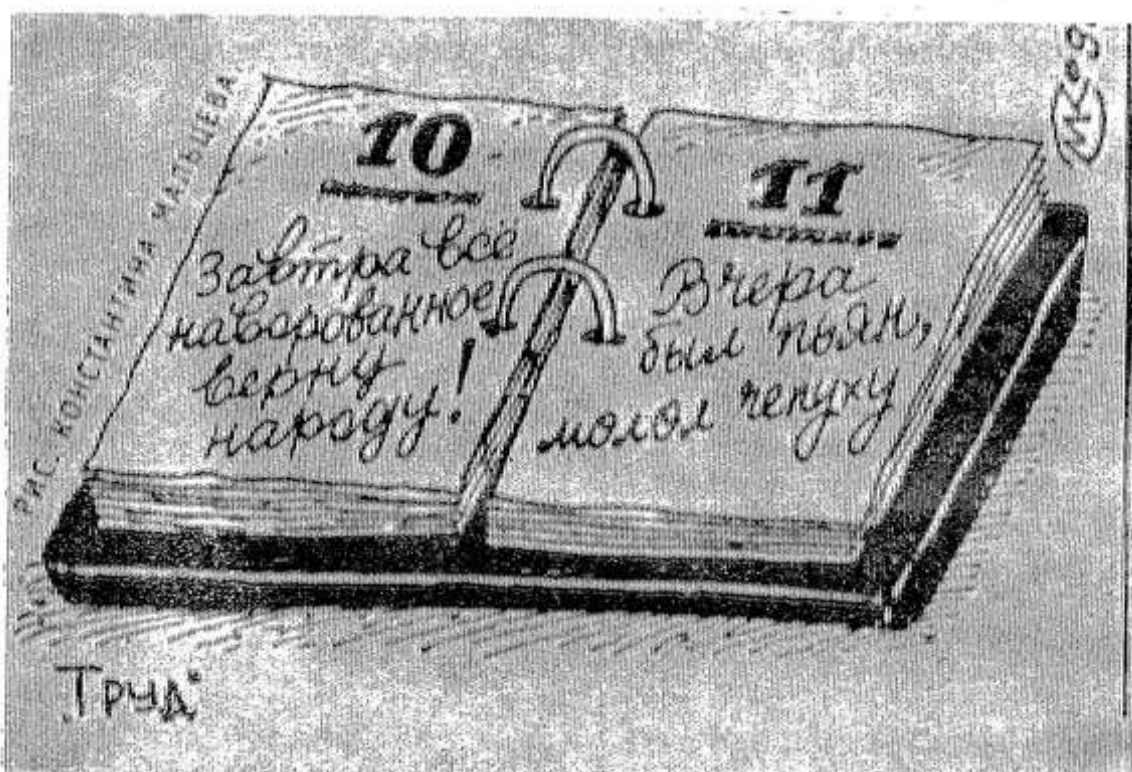 РИС. КОНСТАНТИНА МАЛЬЦЕВА
10
Завтра всё
наворованное
верну
народу!
11
Вчера
был пьян,
молол чепуху
"Труд"